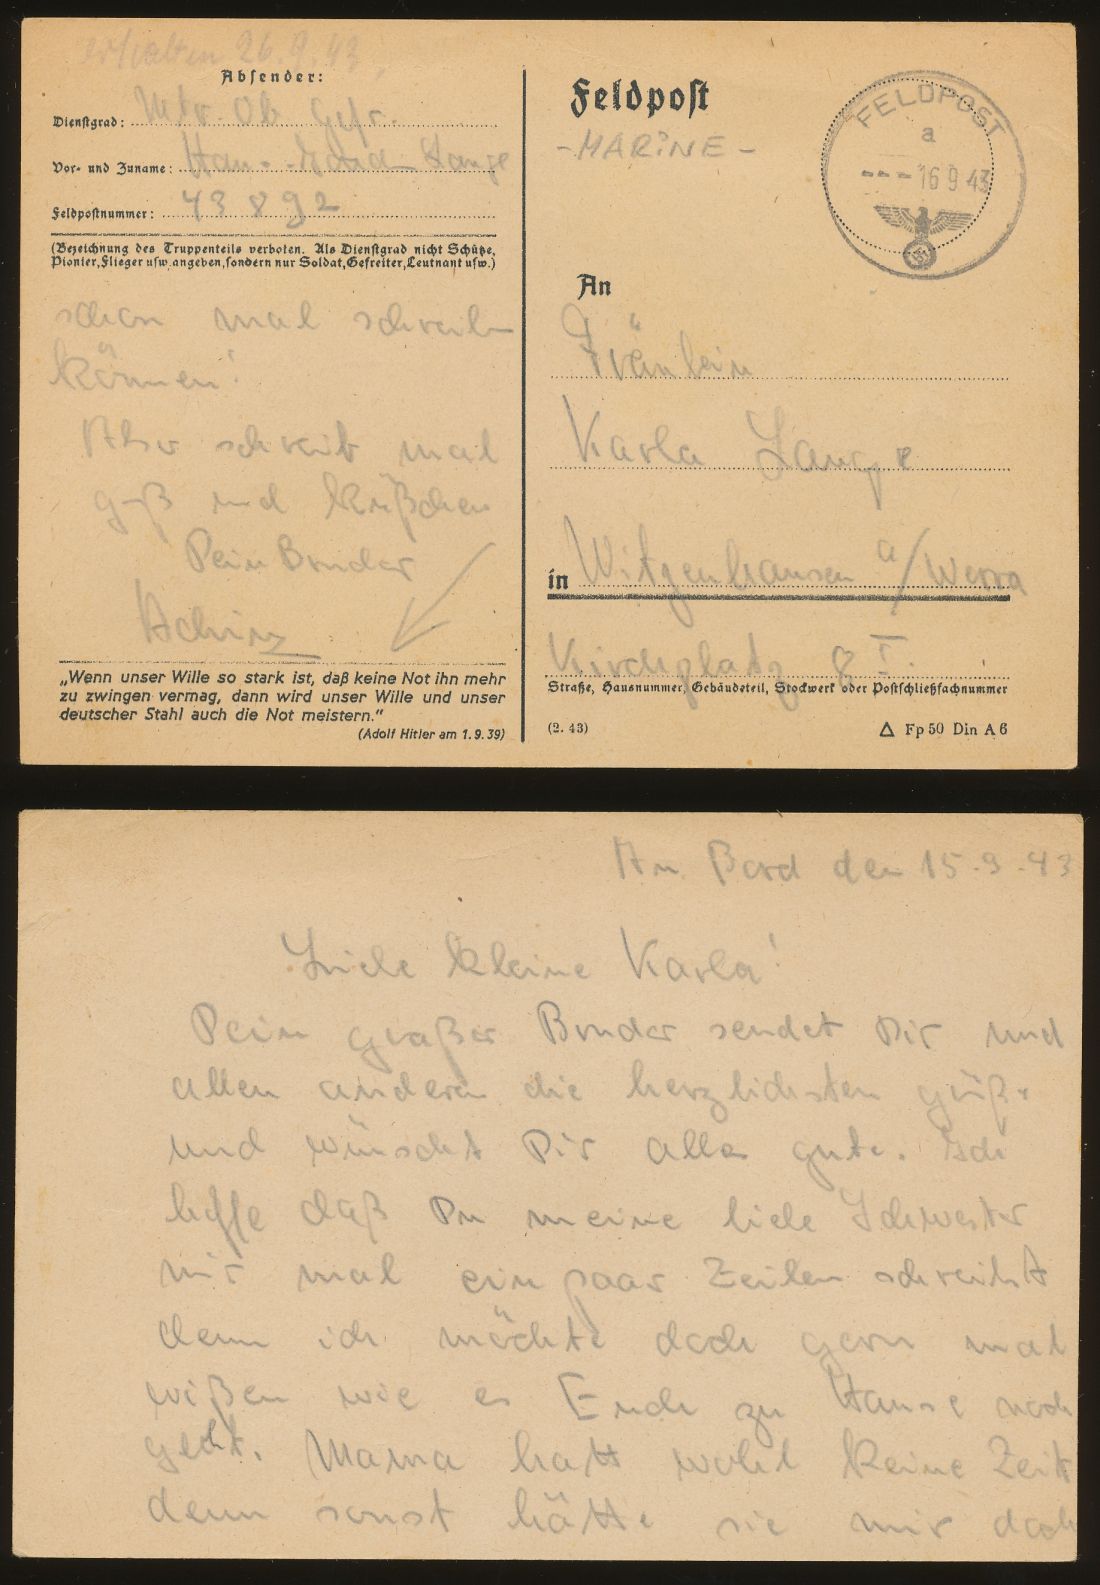 erhalten 26.9.43.
Absender:
Dienstgrad: Mtr. Ob. Gefr.
Vor- und Zuname: Lange
Feldpostnummer: 43892
(Bezeichnung des Truppenteils verboten. Als Dienstgrad nicht Schütze,
Pionier, Flieger usw. angeben, sondern nur Soldat, Gefreiter, Leutnant usw.)
schon mal schreiben
können!
Also schreib mal
gruß und küßchen
Dein Bruder
Achim
„Wenn unser Wille so stark ist, daß keine Not ihn mehr
zu zwingen vermag, dann wird unser Wille und unser
deutscher Stahl auch die Not meistern.“
(Adolf Hitler am 1.9.39)
Feldpost
-MARINE-
FELDPOST
a
---16 9 43
An
Fräulein
Karla Lange
in Witzenhausen a/Werra
Kirchplatz 8 I.
Straße, Hausnummer, Gebäudeteil, Stockwerk oder Postschließfachnummer
(2. 43)
△ Fp 50 Din A 6
An Bord den 15.9.43
Liebe kleine Karla!
Dein großer Bruder sendet Dir und
allen anderen die herzlichsten grüße
und wünscht Dir alles gute. Ich
hoffe daß Du meine liebe Schwester
mir mal ein paar Zeilen schreibst
denn ich möchte doch gern mal
wißen wie es Euch zu Hause noch
geht. Mama hatt wohl keine Zeit
denn sonst hätte sie mir doch